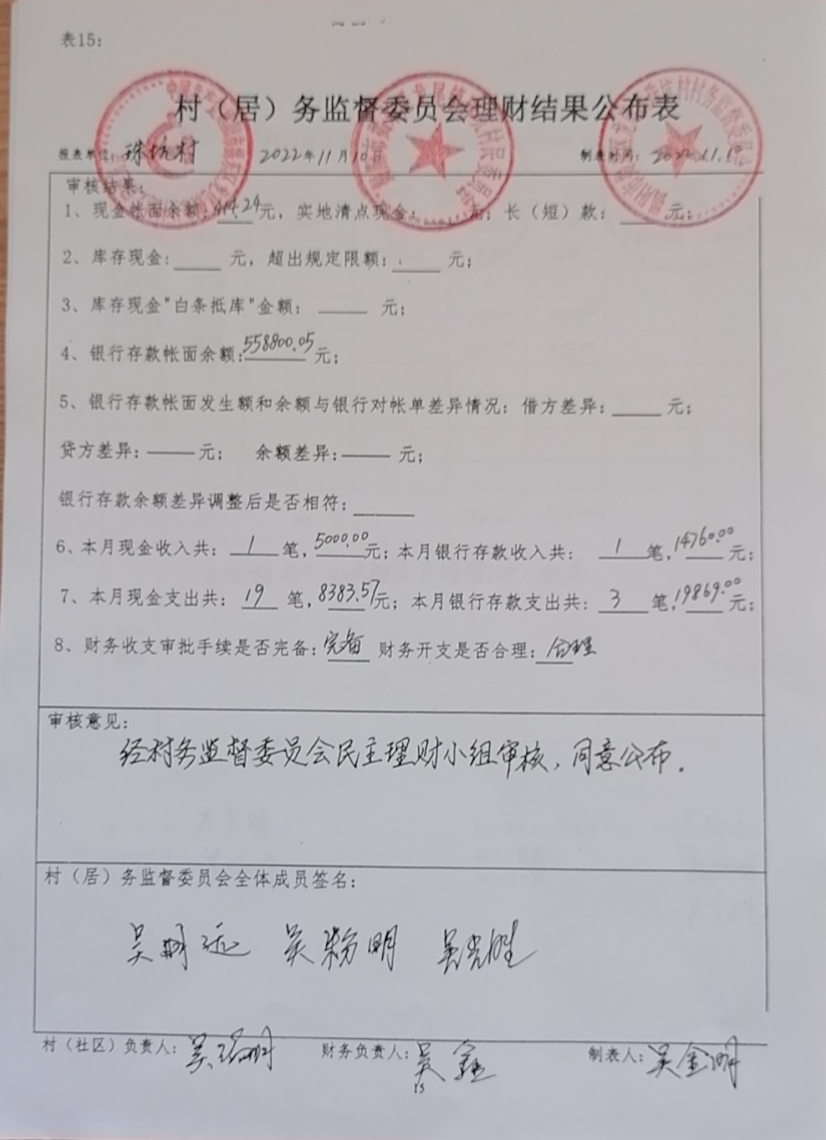 表15:
村（居）务监督委员会理财结果公布表
报表单位: 珠坊村 2022年11月10日 制表时间: 2022.11.10
审核结果:
1、现金帐面余额: 414.24元, 实地清点现金: 元; 长（短）款: 元;
2、库存现金: 元, 超出规定限额: 元;
3、库存现金"白条抵库"金额: 元;
4、银行存款帐面余额: 558800.05元;
5、银行存款帐面发生额和余额与银行对帐单差异情况: 借方差异: 元;
贷方差异: 元; 余额差异: 元;
银行存款余额差异调整后是否相符:
6、本月现金收入共: 1 笔, 5000.00元; 本月银行存款收入共: 1 笔, 14760.00元;
7、本月现金支出共: 19 笔, 8383.57元; 本月银行存款支出共: 3 笔, 19869.00元;
8、财务收支审批手续是否完备: 完备 财务开支是否合理: 合理
审核意见:
经村务监督委员会民主理财小组审核、同意公布.
村（居）务监督委员会全体成员签名:
吴 远 吴粉明 吴光胜
村（社区）负责人: 吴 明 财务负责人: 吴鑫 制表人: 吴金明
15